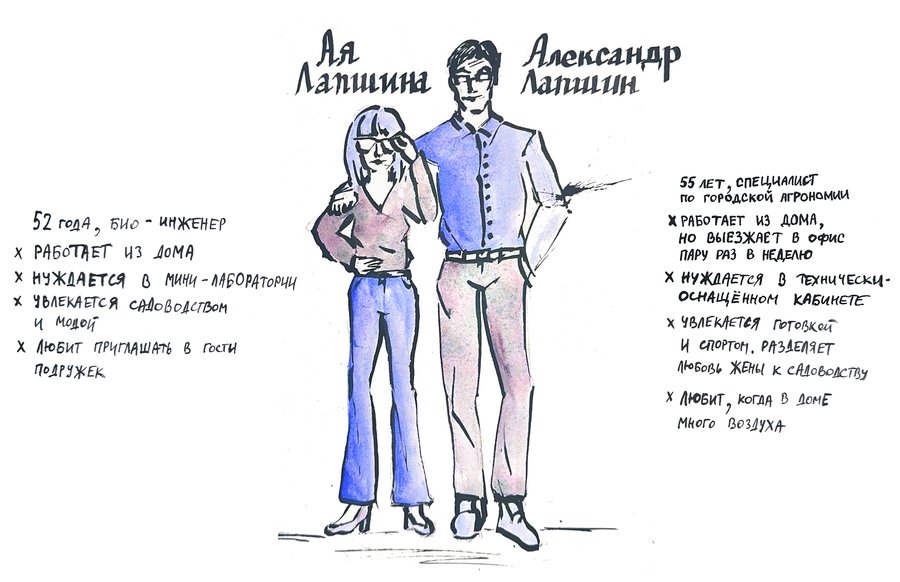 Ая
Лапшина
Александр
Лапшин
52 года, био-инженер
х работает из дома
х нуждается в мини-лаборатории
х увлекается садоводством
и модой
х любит приглашать в гости
подружек
55 лет, специалист
по городской агрономии
х работает из дома,
но выезжает в офис
пару раз в неделю
х нуждается в технически-
оснащённом кабинете
х увлекается готовкой
и спортом. разделяет
любовь жены к садоводству
х любит, когда в доме
много воздуха